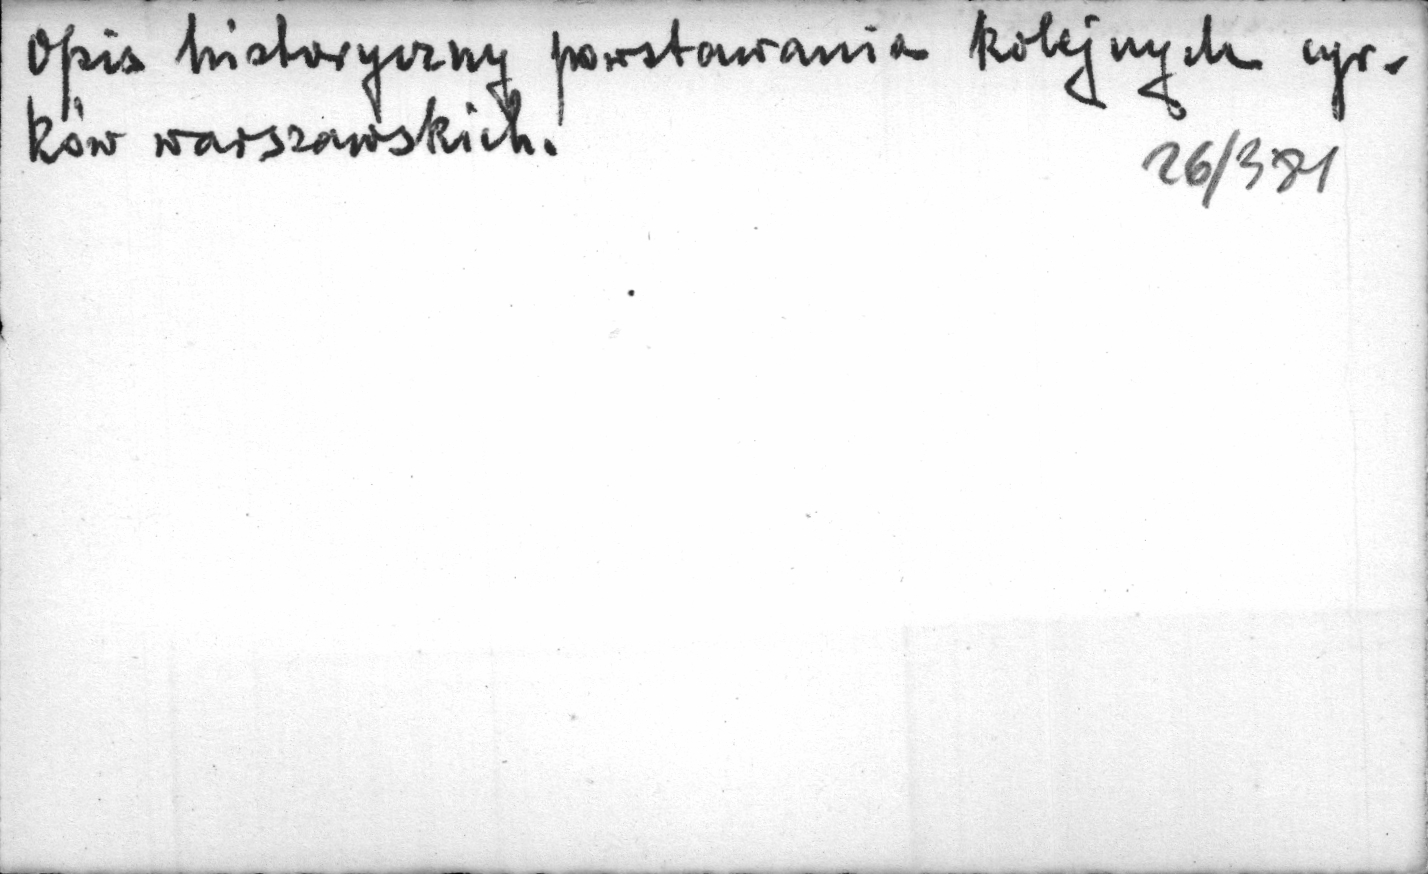 Opis historyczny powstawania kolejnych cyr-
ków warszawskich.
26/381